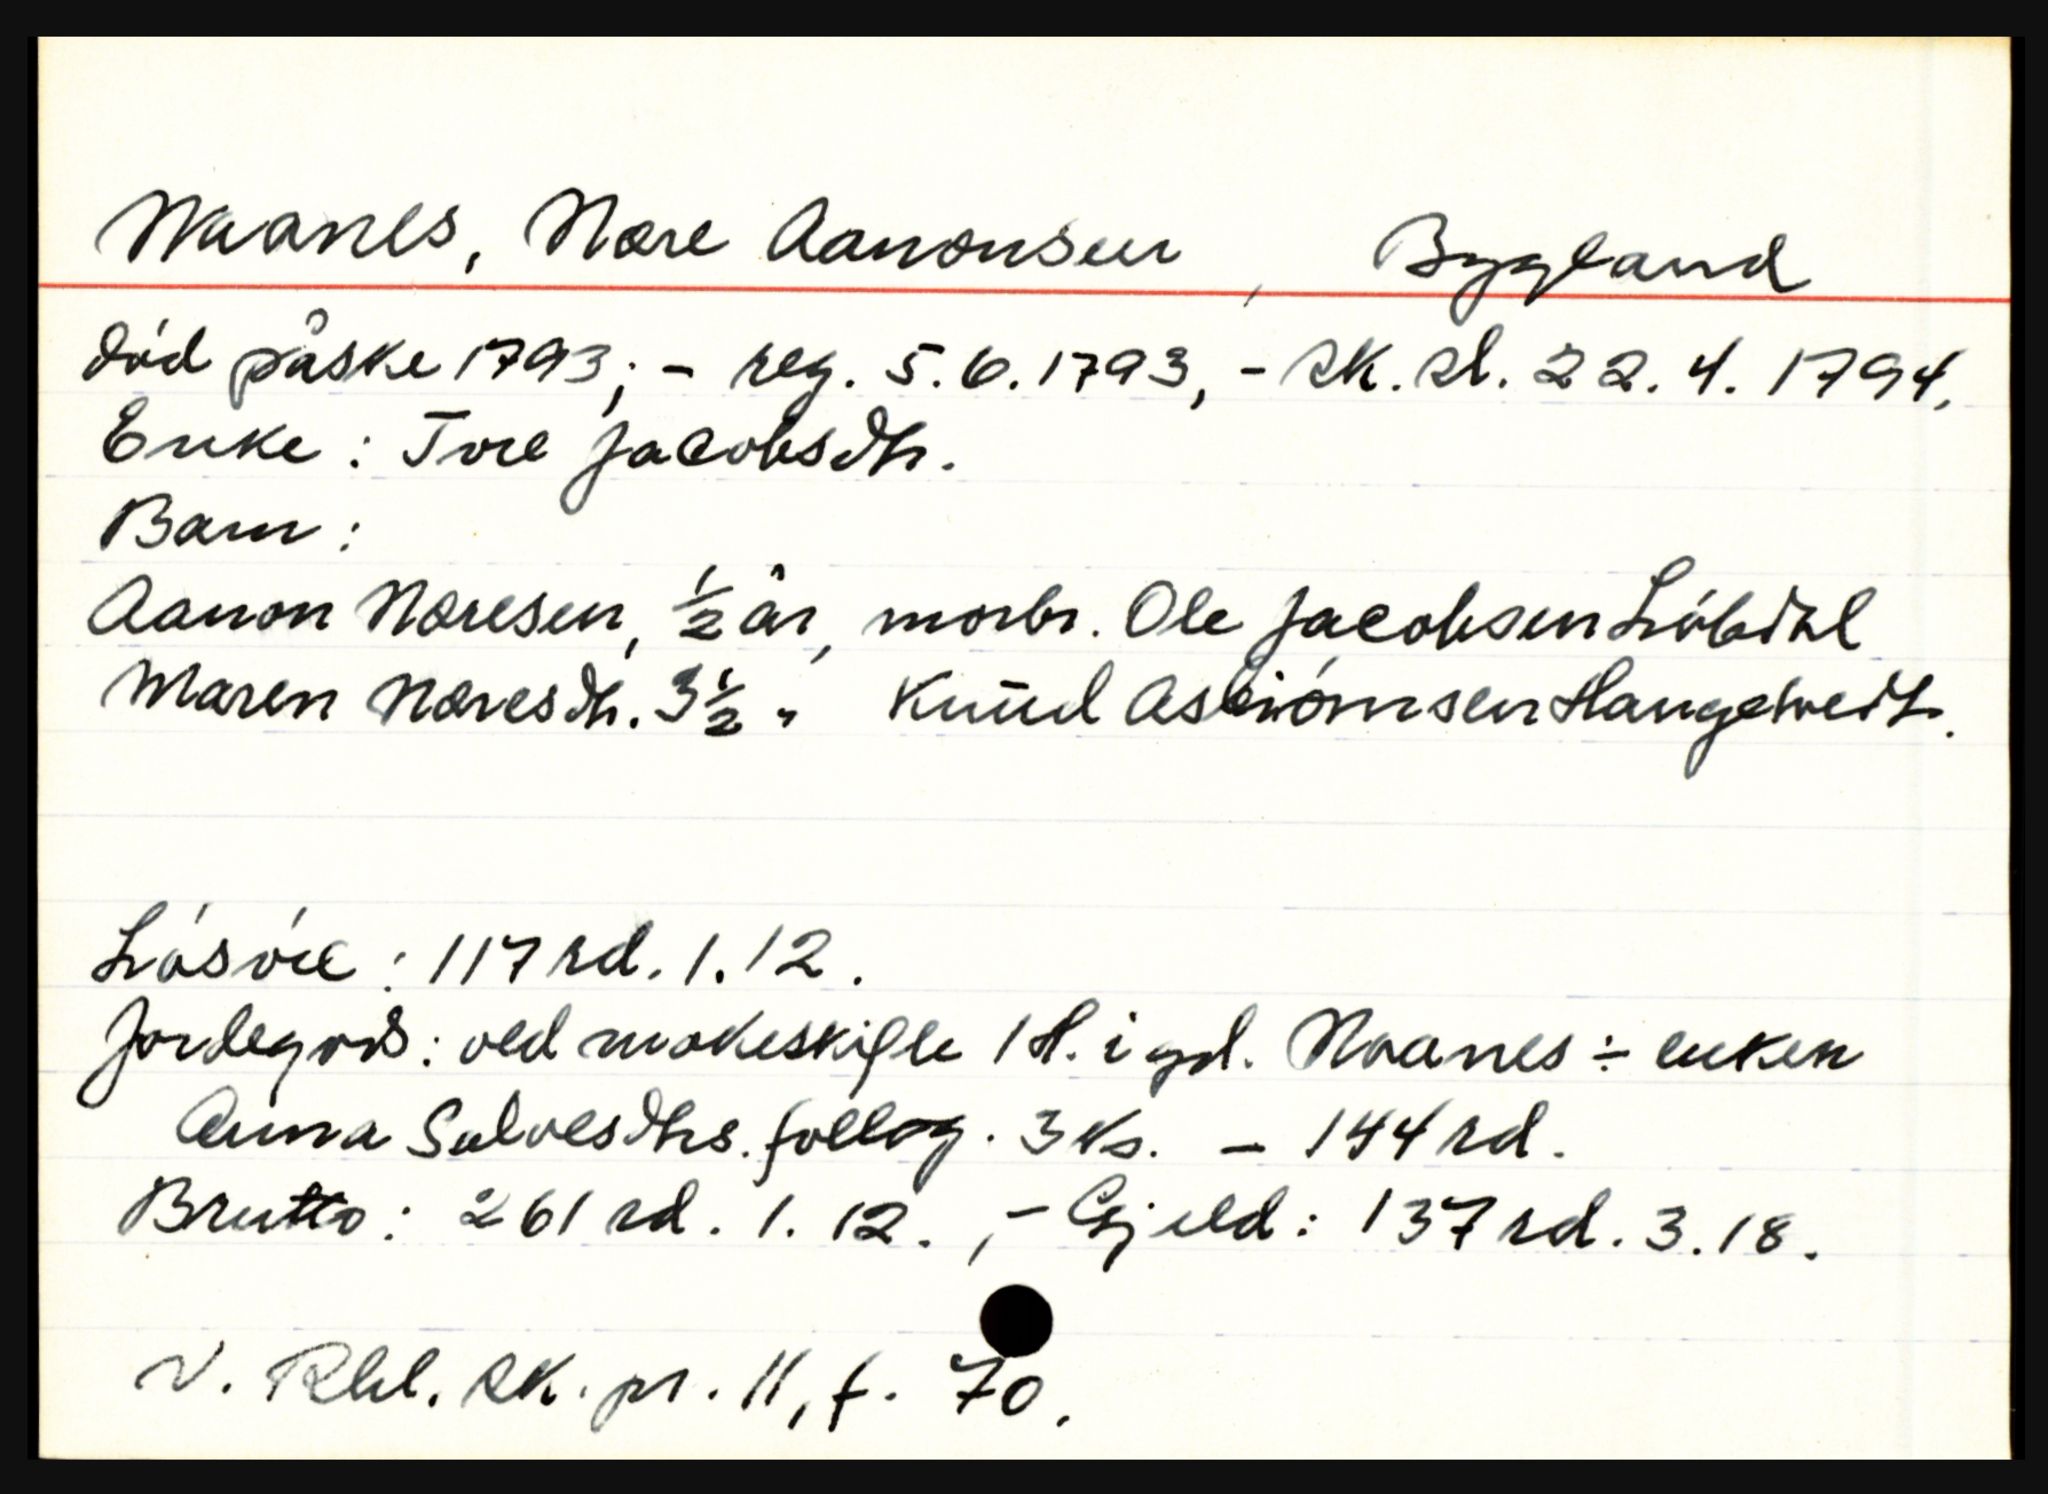 Waanes, Nære Aanonsen, Bygland
død påske 1793; - reg. 5.6.1793, - sk. sl. 22.4.1794.
Enke: Tore Jacobsdtr.
Barn:
Aanon Næresen, ½ år, morbr. Ole Jacobsen Løbdal
Maren Næresdtr. 3½ " Knud Asbiørnsen Haugetvedt.
Løsøre: 117 rd. 1. 12.
Jordegods: ved makeskifte 1 H. i gd. Noanes ÷ enken
Anna Salvesdtrs. follog. 3 ks. - 144 rd.
Brutto: 261 rd. 1. 12., - Gjeld: 137 rd. 3. 18.
V. Rbl. sk. pr. 11, f. 70.